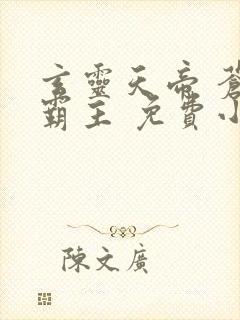 玄靈天帝 蒼
霸主 免費小
陳文廣